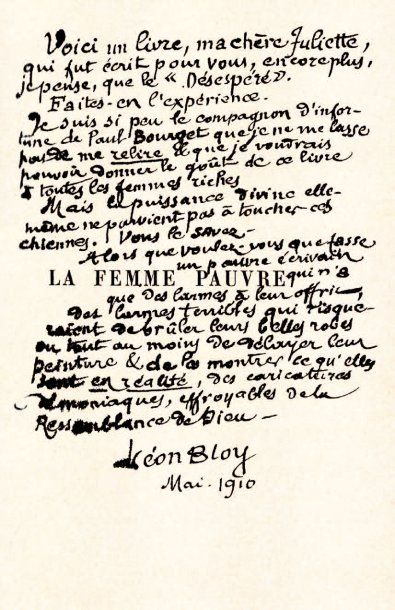 Voici un livre, ma chère Juliette,
qui fut écrit pour vous, encore plus,
je pense, que le « Désespéré ».
Faites-en l'expérience.
Je suis si peu le compagnon d'infor-
tune de Paul Bourget que je ne me lasse
pas de me relire & que je voudrais
pouvoir donner le goût de ce livre
à toutes les femmes riches
Mais la puissance divine elle-
même ne parvient pas à toucher ces
chiennes. Vous le savez.
Alors que voulez-vous que fasse
un pauvre écrivain
LA FEMME PAUVRE qui n'a
que des larmes à leur offrir,
des larmes terribles qui risque-
raient de brûler leurs belles robes
ou tout au moins de délayer leur
peinture & de les montrer ce qu'elles
sont en réalité, des caricatures
démoniaques, effroyables de la
Ressemblance de Dieu —
Léon Bloy
Mai. 1910